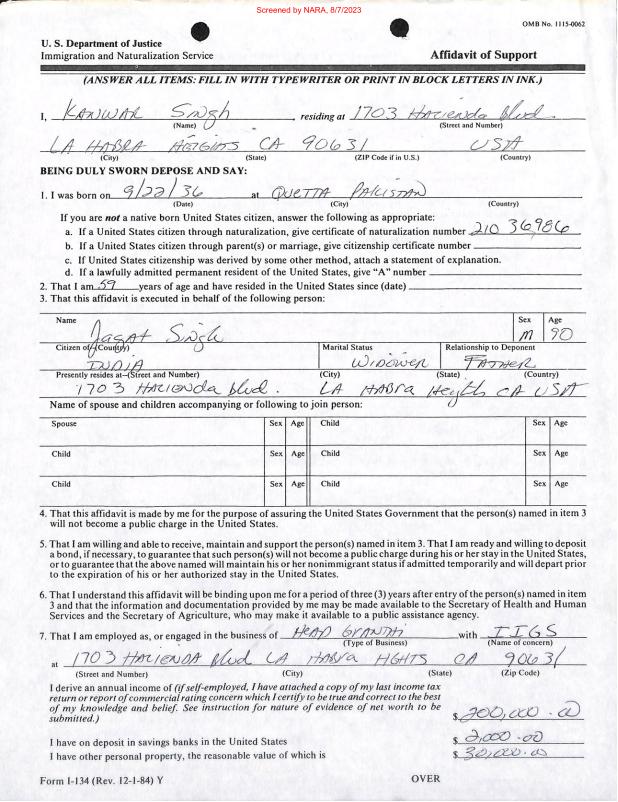 Screened by NARA, 8/7/2023
OMB No. 1115-0062
U. S. Department of Justice
Immigration and Naturalization Service
Affidavit of Support
(ANSWER ALL ITEMS: FILL IN WITH TYPEWRITER OR PRINT IN BLOCK LETTERS IN INK.)
I, KANWAR Singh residing at 1703 Hacienda Blvd.
(Name) (Street and Number)
LA HABRA HEIGHTS CA 90631 USA
(City) (State) (ZIP Code if in U.S.) (Country)
BEING DULY SWORN DEPOSE AND SAY:
1. I was born on 9/22/36 at QUETTA PAKISTAN
(Date) (City) (Country)
If you are not a native born United States citizen, answer the following as appropriate:
a. If a United States citizen through naturalization, give certificate of naturalization number 210 36986
b. If a United States citizen through parent(s) or marriage, give citizenship certificate number
c. If United States citizenship was derived by some other method, attach a statement of explanation.
d. If a lawfully admitted permanent resident of the United States, give "A" number
2. That I am 59 years of age and have resided in the United States since (date)
3. That this affidavit is executed in behalf of the following person:
Name Sex Age
Jagat Singh M 90
Citizen of—(Country) Marital Status Relationship to Deponent
INDIA WIDOWER FATHER
Presently resides at—(Street and Number) (City) (State) (Country)
1703 HACIENDA Blvd. LA HABRA Heights CA USA
Name of spouse and children accompanying or following to join person:
Spouse Sex Age Child Sex Age
Child Sex Age Child Sex Age
Child Sex Age Child Sex Age
4. That this affidavit is made by me for the purpose of assuring the United States Government that the person(s) named in item 3
will not become a public charge in the United States.
5. That I am willing and able to receive, maintain and support the person(s) named in item 3. That I am ready and willing to deposit
a bond, if necessary, to guarantee that such person(s) will not become a public charge during his or her stay in the United States,
or to guarantee that the above named will maintain his or her nonimmigrant status if admitted temporarily and will depart prior
to the expiration of his or her authorized stay in the United States.
6. That I understand this affidavit will be binding upon me for a period of three (3) years after entry of the person(s) named in item
3 and that the information and documentation provided by me may be made available to the Secretary of Health and Human
Services and the Secretary of Agriculture, who may make it available to a public assistance agency.
7. That I am employed as, or engaged in the business of HEAD GRANTHI with IIGS
(Type of Business) (Name of concern)
at 1703 HACIENDA Blvd LA HABRA HGHTS CA 90631
(Street and Number) (City) (State) (Zip Code)
I derive an annual income of (if self-employed, I have attached a copy of my last income tax
return or report of commercial rating concern which I certify to be true and correct to the best
of my knowledge and belief. See instruction for nature of evidence of net worth to be
submitted.) $ 200,000.00
I have on deposit in savings banks in the United States $ 2,000.00
I have other personal property, the reasonable value of which is $ 30,000.00
Form I-134 (Rev. 12-1-84) Y OVER